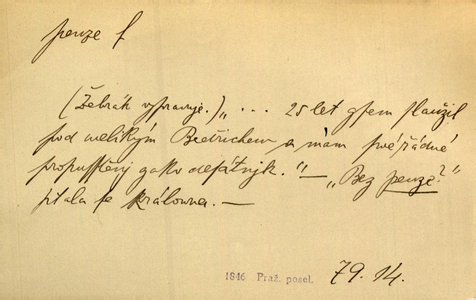 penze f
(Žebrák vypravuje.) „ ... 25 let gsem slaužil
pod welikým Bedřichem a mám swé řádné
propusstěný gako defátnjk." — „Bez penze?"
ptala se králowna. —
1846 Praž. posel. 79. 14.